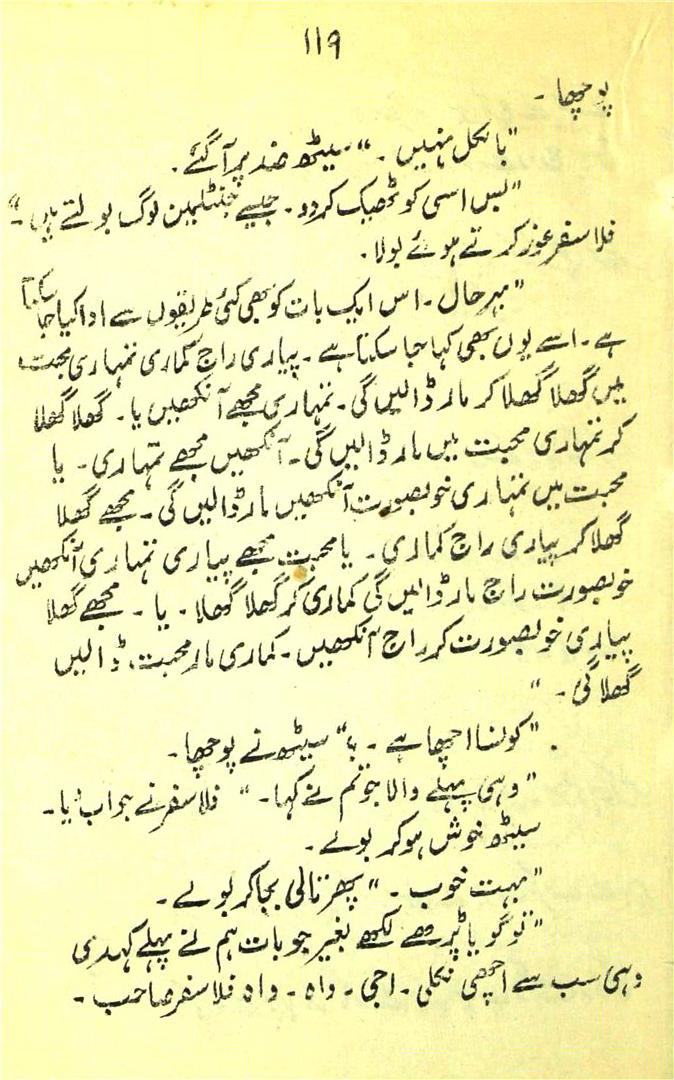 ۱۱۹
پوچھا ۔
"بالکل نہیں ۔" سیٹھ ضد پر آ گئے ۔
"بس اسی کو ٹھیک کر دو ۔ جیسے جنٹلمین لوگ بولتے ہیں ۔"
فلاسفر غور کرتے ہوئے بولا ۔
"بہر حال ۔ اس ایک بات کو بھی کئی طریقوں سے ادا کیا جا سکتا
ہے ۔ اسے یوں بھی کہا جا سکتا ہے ۔ پیاری راج کماری تمہاری محبت
میں گھلا گھلا کر مار ڈالیں گی ۔ تمہاری مجھے آنکھیں یا ۔ گھلا گھلا
کر تمہاری محبت میں مار ڈالیں گی ۔ آنکھیں مجھے تمہاری ۔ یا
محبت میں تمہاری خوبصورت آنکھیں مار ڈالیں گی ۔ مجھے گھلا
گھلا کر پیاری راج کماری ۔ یا محبت مجھے پیاری تمہاری آنکھیں
خوبصورت راج مار ڈالیں گی کماری کر گھلا گھلا ۔ یا ۔ مجھے گھلا
پیاری خوبصورت کر راج آنکھیں ۔ کماری مار محبت، ڈالیں
گھلا گی ۔ "
"کونسا اچھا ہے ۔ ؟" سیٹھ نے پوچھا ۔
"وہی پہلے والا جو تم نے کہا ۔ " فلاسفر نے جواب دیا ۔
سیٹھ خوش ہو کر بولے ۔
"بہت خوب ۔ " پھر تالی بجا کر بولے ۔
"تو گویا پڑھے لکھے بغیر جو بات ہم نے پہلے کہدی
وہی سب سے اچھی نکلی ۔ اجی ۔ واہ ۔ واہ فلاسفر صاحب ۔